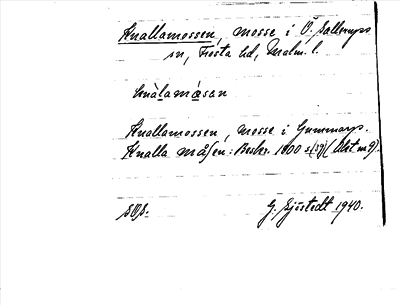 Knallamossen, mosse i Ö. Sallerups
sn, Frosta hd, Malm. l.
knàlamåsan
Knallamossen, mosse i Gummarp.
Knalla måsen: Beskr. 1800 (Akt m 9).
G. Sjöstedt 1940.